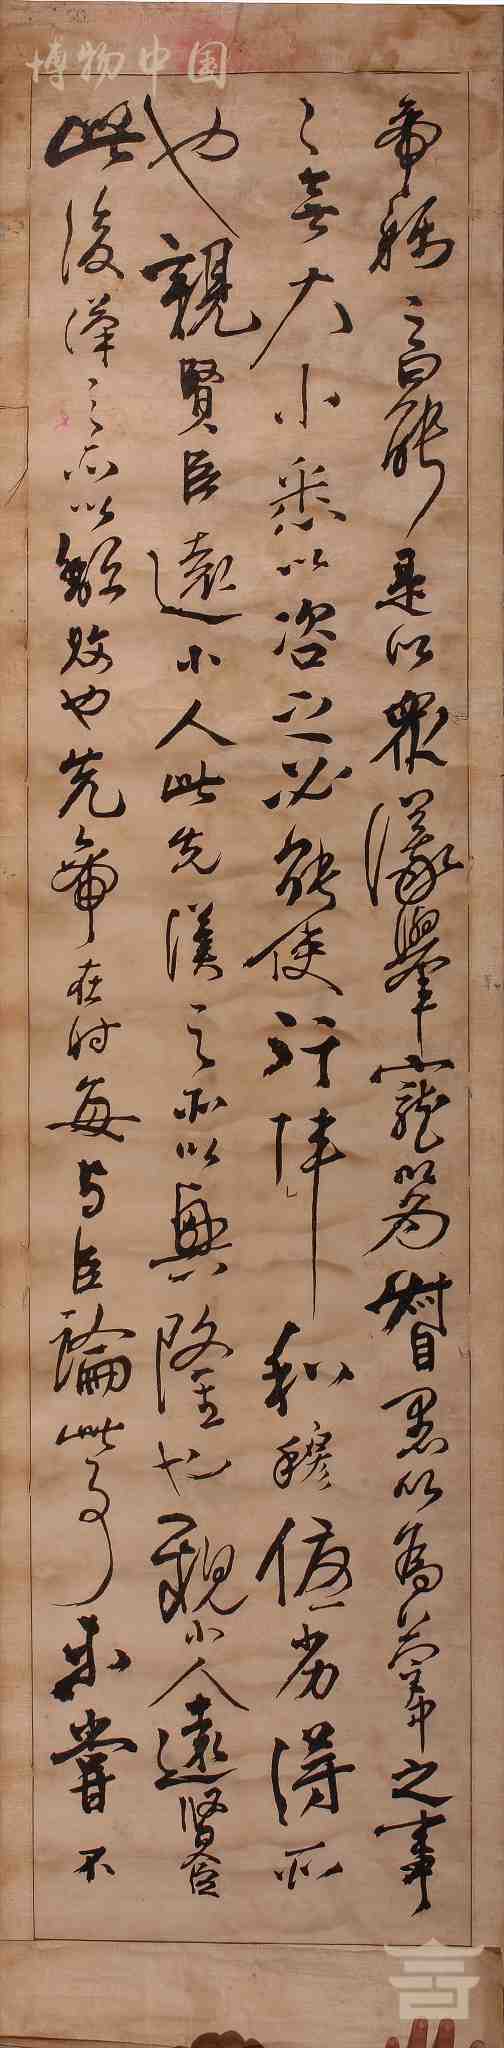 博物中国
帝稱之曰能是以眾議舉寵以為督愚以為營中之事
〻無大小悉以咨之必能使行陣和穆優劣得所
也親賢臣遠小人此先漢之所以興隆也親小人遠賢臣
此後漢之所以傾頹也先帝在时每与臣論此事未嘗不